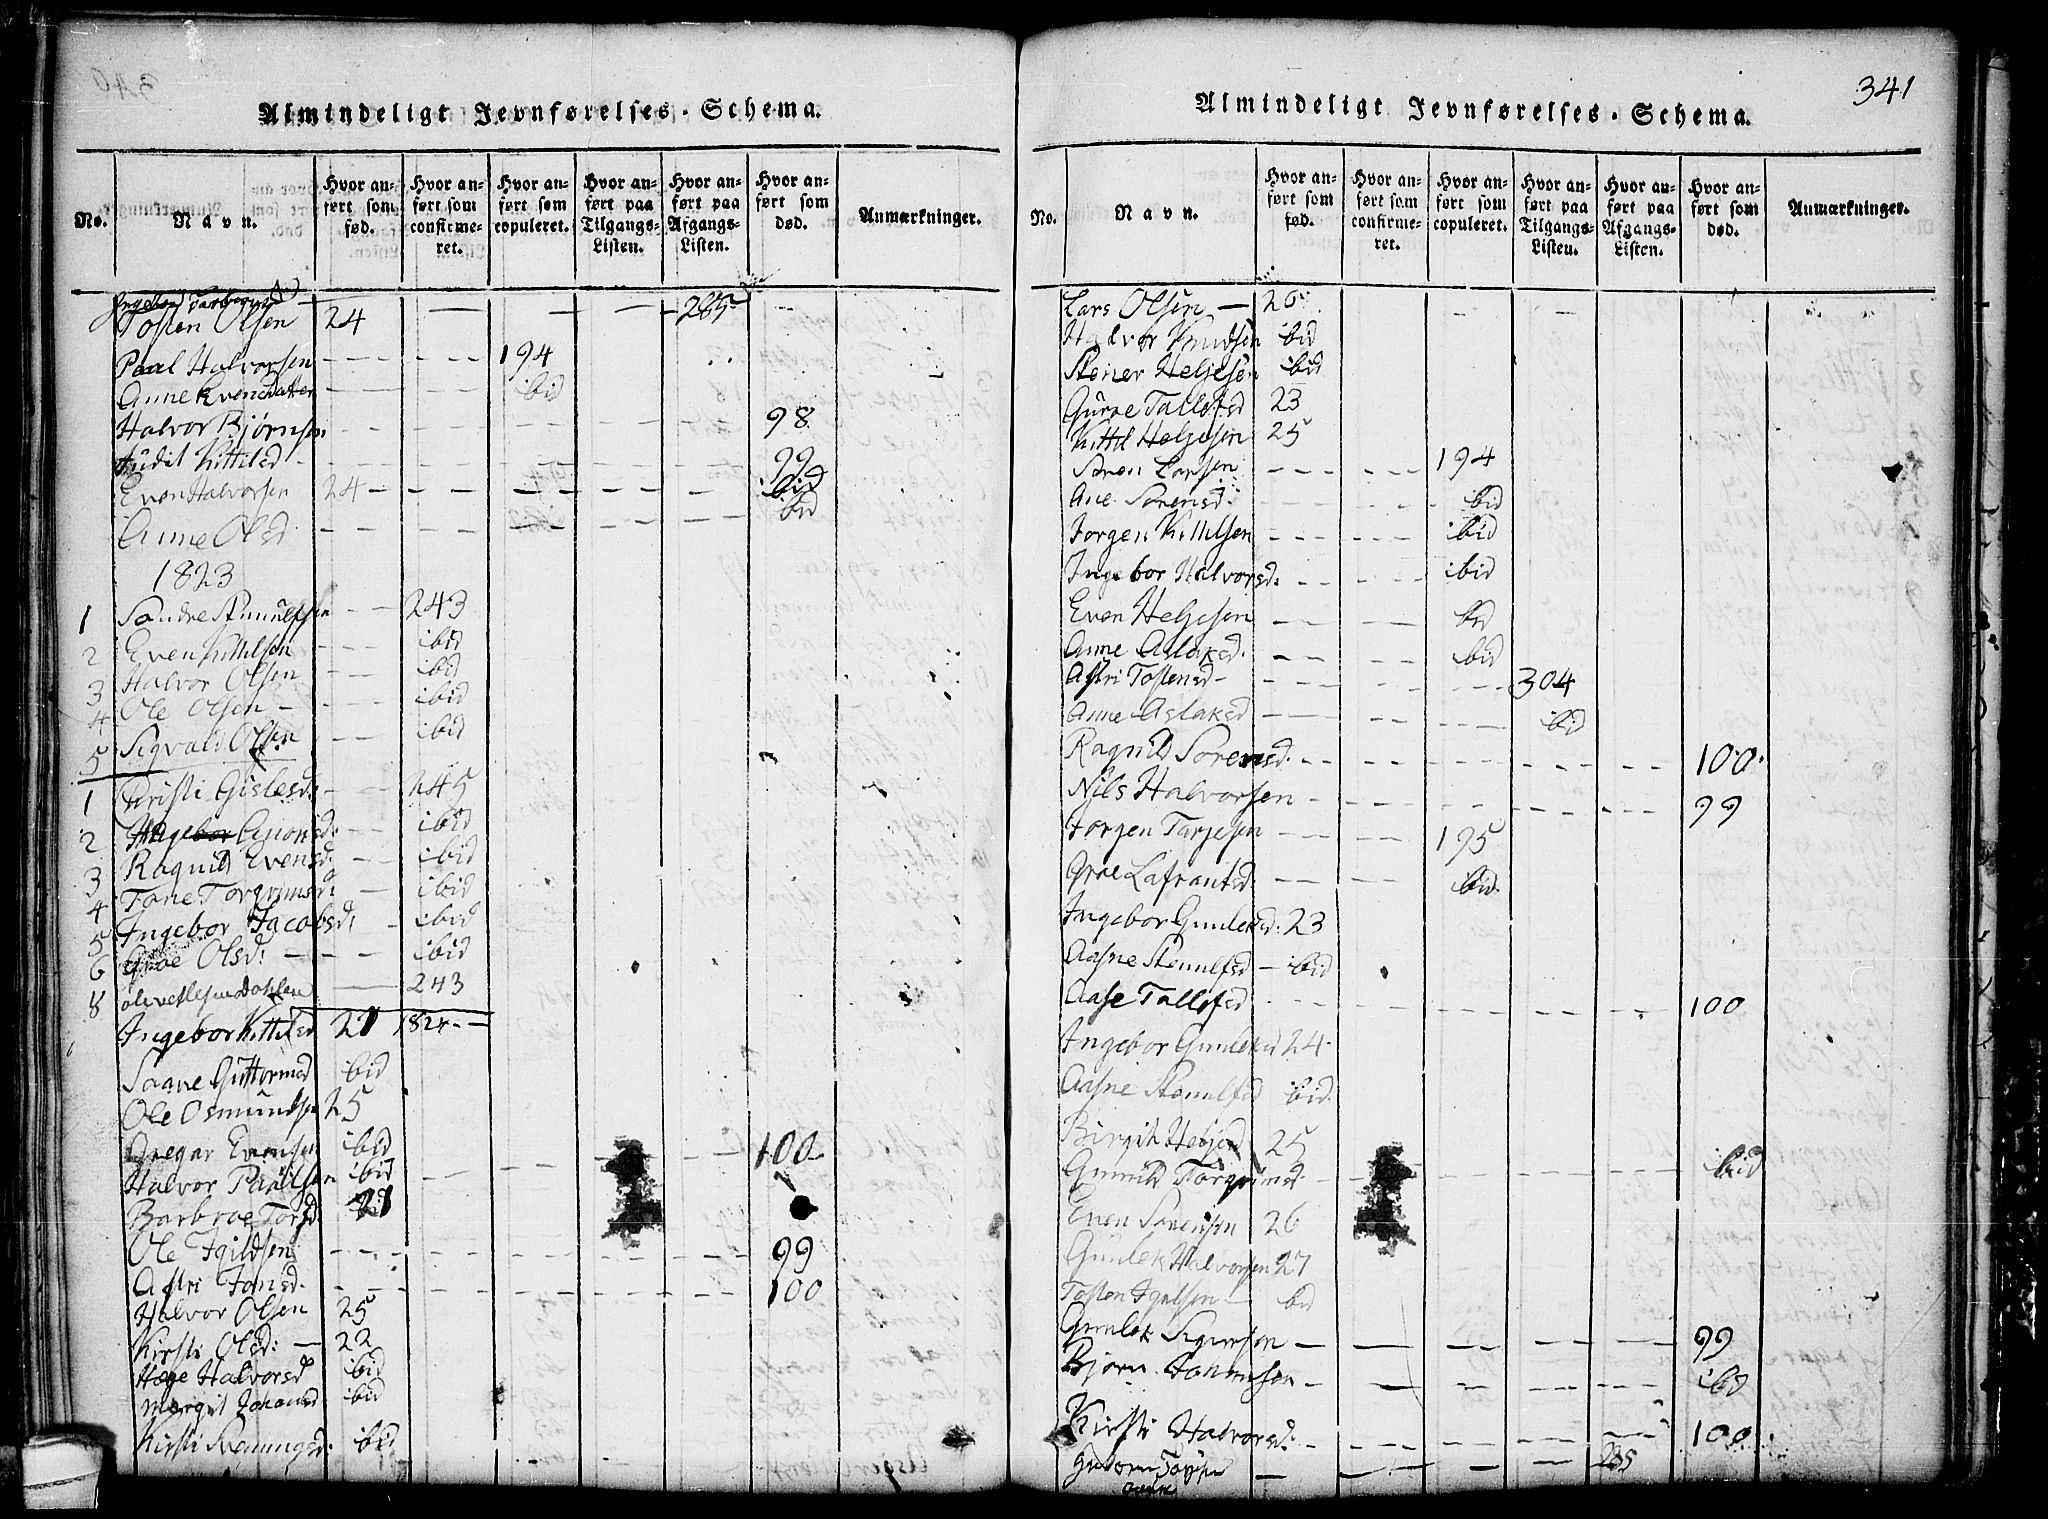 340
Almindeligt Jevnførelses-Schema.
No. Navn. Hvor anført som fød. Hvor anført som confirmeret. Hvor anført som copuleret. Hvor anført paa Tilgangs-Listen. Hvor anført paa Afgangs-Listen. Hvor anført som død. Anmærkninger.
Ingebor — — — — 285
Tosten Olsen 24
Paul Halvorsen — — 194
Anne Evensdatter — — ibid
Halvor Bjørnsen — — — — — 98
Judit Kittilsd — — — — — 99
Even Halvorsen 24 — — — — ibid
Anne Olsd — — — — — ibid
1823
1 Sondre — 243
2 Even Kittilsen — ibid
3 Halvor Olsen — ibid
4 Ole Olsen — ibid
5 Sigvald Olsen — ibid
1 Kristi Gislesd: — 245
2 Ingebor Gunorsd: — ibid
3 Ragnild Evensd: — ibid
4 Tone Torgrimsd: — ibid
5 Ingebor Jacobsd: — ibid
6 Groe Olsd: — ibid
8 — 243
Ingebor Kittilsd 21 1824 —
Saave Guttormsd ibid
Ole Osmundsen 25
Gregar Evensen ibid — — — — 100
Halvor Paulsen ibid
Barbroe Torsd. 21
Ole Igildsen — — — — — 99
Astri Jonsd. — — — — — 100
Halvor Olsen 25
Kirsti Olsd: — 22
Hæge Halvorsd ibid
Margit Johansd ibid
Kirsti Svenungsd: ibid
341
Almindeligt Jevnførelses-Schema.
No. Navn. Hvor anført som fød. Hvor anført som confirmeret. Hvor anført som copuleret. Hvor anført paa Tilgangs-Listen. Hvor anført paa Afgangs-Listen. Hvor anført som død. Anmærkninger.
Lars Olsen — 26
Halvor Knudsen ibid
Stener Helgesen ibid
Guroe Tallefsd 23
Kittil Helgesen 25
Søren Larsen — — 194
Ane Sørensd: — — ibid
Jørgen Kittilsen — — ibid
Ingebor Halvorsd: — — ibid
Even Helgesen — — ibid
Anne Aslaksd: — — ibid
Astri Tostensd — — — 304
Anne Aslaksd — — — ibid
Ragnild Sørensd: — — — — — 100
Nils Halvorsen — — — — — 99
Jørgen Tarjesen — — 195
Groe Lafrantsd: — — ibid
Ingebor Gunleksd: 23
Aasne Stenulfsd — ibid
Aase Tallefsd — — — — — 100
Ingebor Gunleksd 24
Aasne Stenulfsd ibid
Birgit Helgesd 25
Gunild Torgrimsd — — — — — ibid
Even Sørensen 26
Gunlek Halvorsen 27
Tosten Igelsen — ibid
Gunlek Sigursen — — — — — 99
Bjørn Johannsen — — — — — ibid
Kirsti Halvorsd: — — — — — 100
— — — — 235